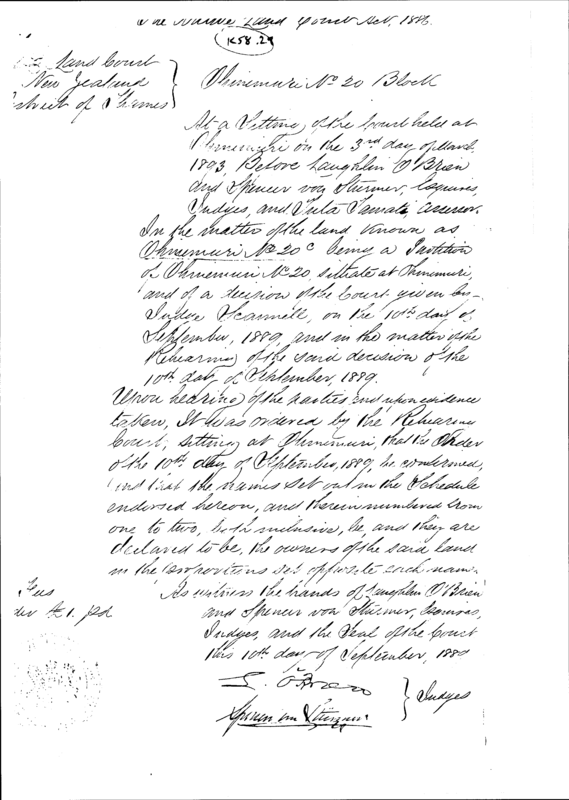 The Native Land Court Act, 1886.
K58.29
Land Court
New Zealand
District of Thames
Ohinemuri No 20 Block
At a Sitting of the Court held at
Ohinemuri on the 3rd day of March
1893, Before Laughlin O'Brien
and Spencer von Sturmer, Esquires,
Judges, and Tamati, assessor.
In the matter of the land known as
Ohinemuri No 20c being a Partition
of Ohinemuri No 20, situate at Ohinemuri,
and of a decision of the Court given by
Judge Scannell, on the 10th day of
September, 1889, and in the matter of the
Rehearing of the said decision of the
10th day of September, 1889.
Upon hearing of the parties and upon evidence
taken, It was ordered by the Rehearing
Court, sitting at Ohinemuri, that the Order
of the 10th day of September, 1889, be confirmed,
and that the names set out in the Schedule
endorsed hereon, and therein numbered from
one to two, both inclusive, be, and they are
declared to be, the owners of the said land
in the proportions set opposite each name.
As witness the hands of Laughlin O'Brien
and Spencer von Sturmer, Esquires,
Judges, and the Seal of the Court
this 10th day of September, 1889
L. O'Brien
Spencer von Sturmer
Judges
Fees
£1. pd